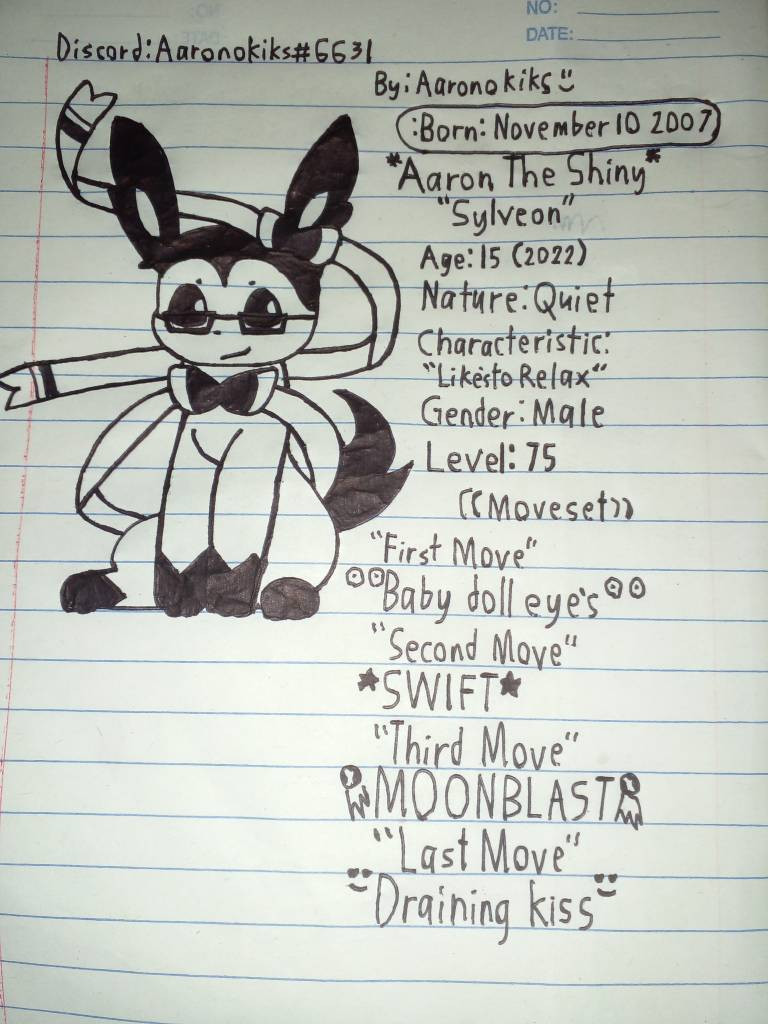 NO:
DATE:
Discord:Aaronokiks#6631
By:Aaronokiks
:Born:November 10 2007
*Aaron The Shiny*
"Sylveon"
Age:15 (2022)
Nature:Quiet
Characteristic:
"Likesto Relax"
Gender:Male
Level:75
((Moveset))
"First Move"
Baby doll eye's
"Second Move"
*SWIFT*
"Third Move"
MOONBLAST
"Last Move"
Draining kiss